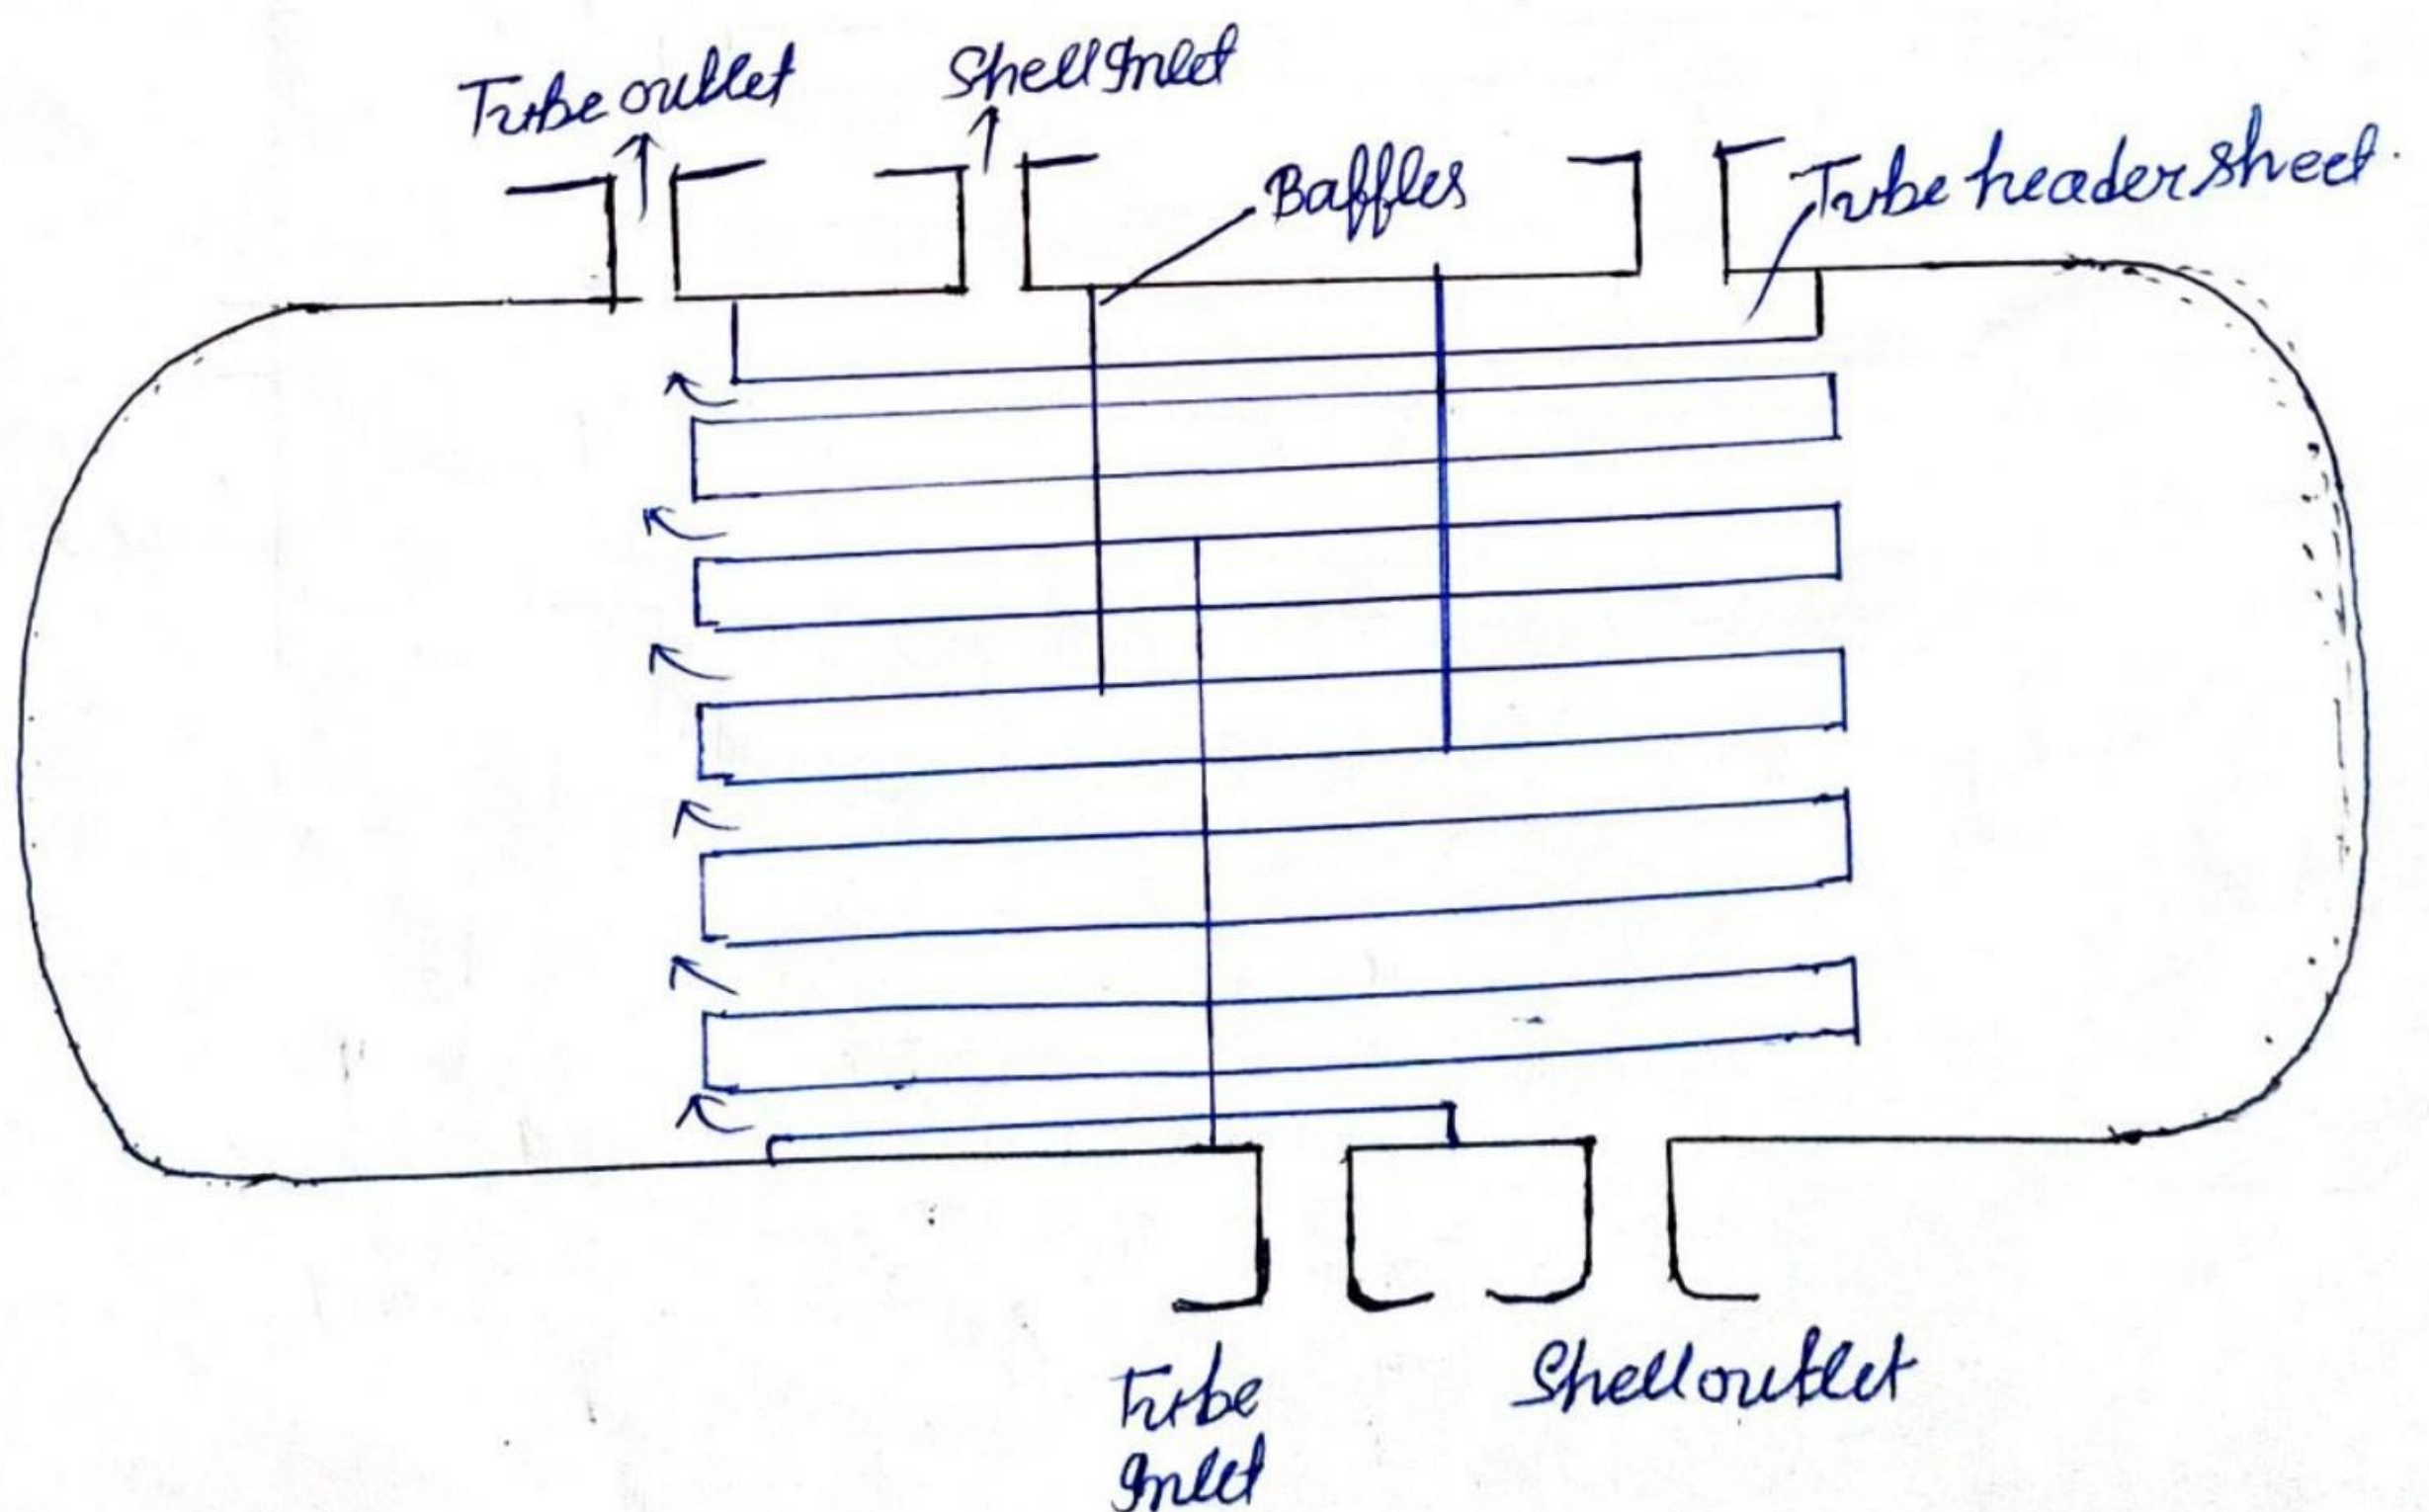 Tube outlet
Shell Inlet
Baffles
Tube header sheet.
Tube
Inlet
Shell outlet